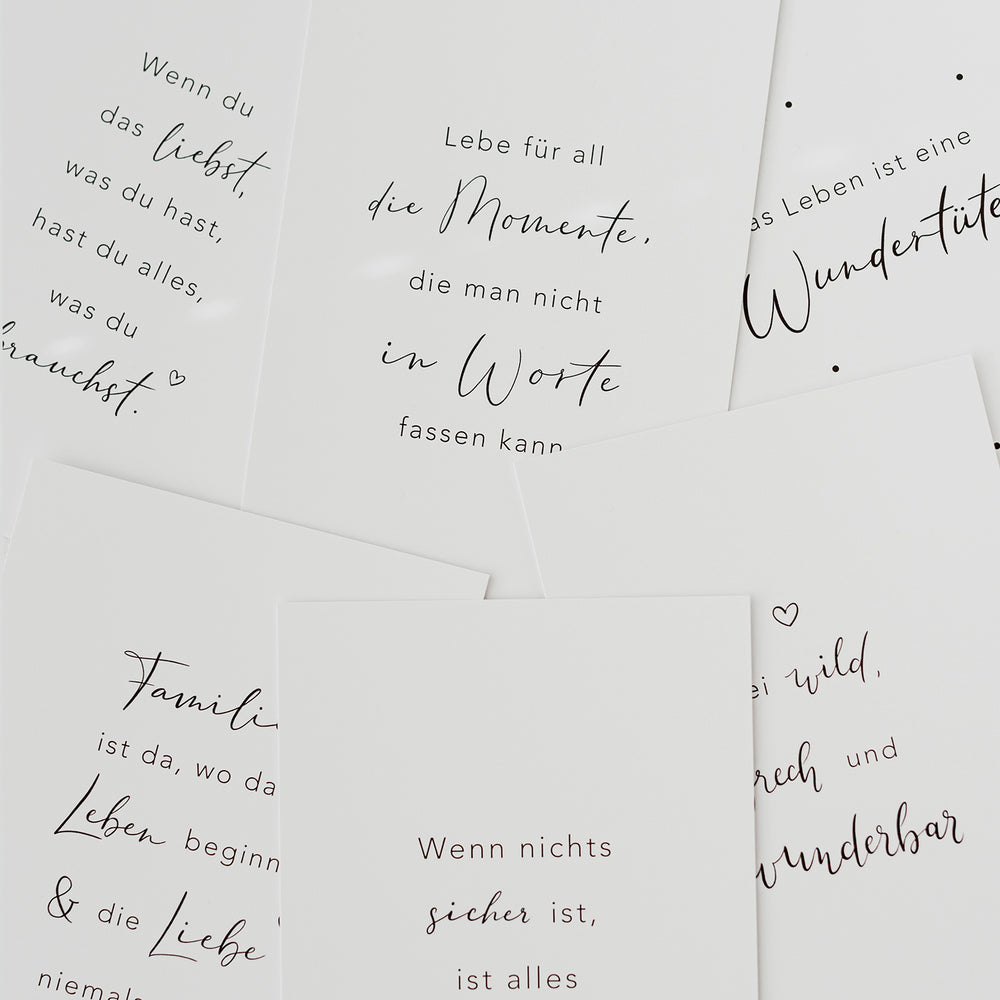 Wenn du
das liebst,
was du hast,
hast du alles,
was du
brauchst.
Lebe für all
die Momente,
die man nicht
in Worte
fassen kann
as Leben ist eine
Wundertüte
Familie
ist da, wo da
Leben beginn
& die Liebe
niemals
Wenn nichts
sicher ist,
ist alles
ei wild,
rech und
wunderbar